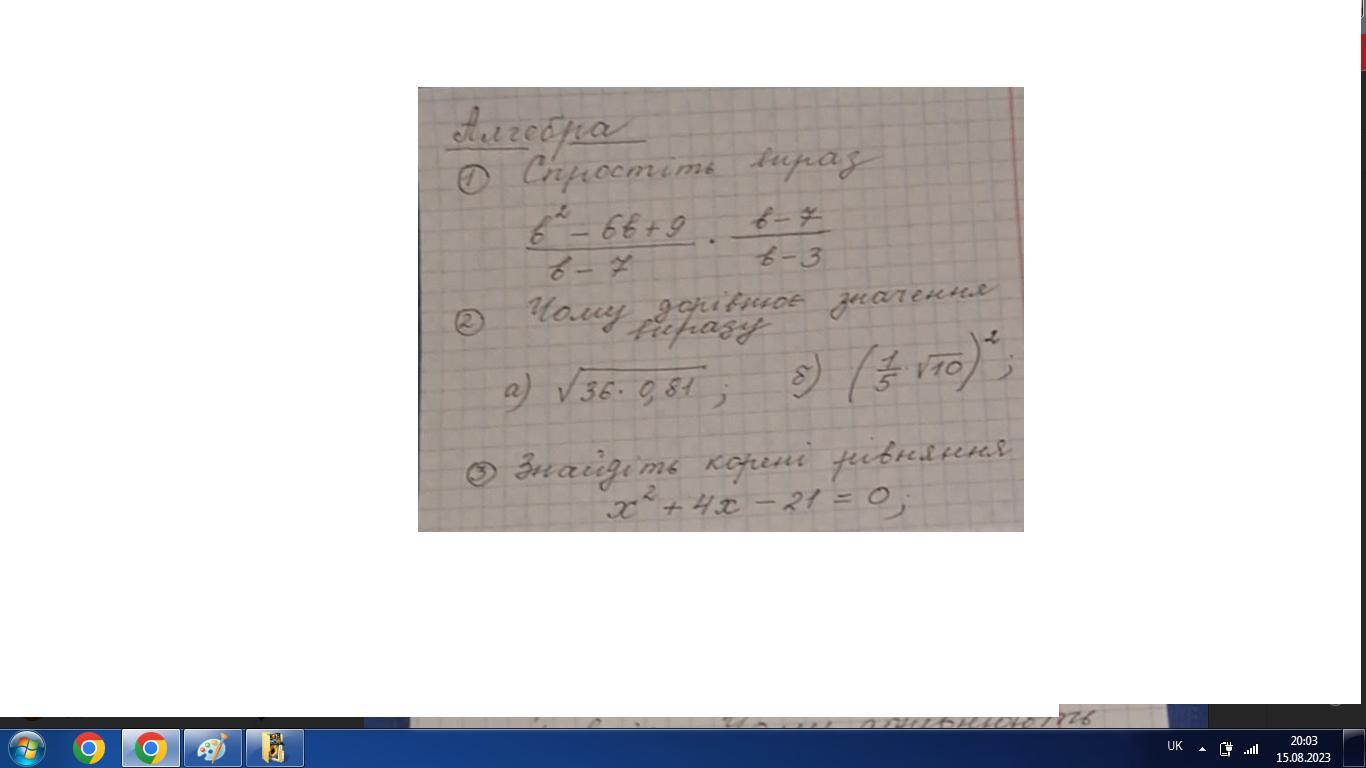 Алгебра
① Спростіть вираз
b² - 6b + 9 / b - 7 · b - 7 / b - 3
② Чому дорівнює значення
виразу
а) √36 · 0,81 ; б) (1/5 √10)² ;
③ Знайдіть корені рівняння
x² + 4x - 21 = 0 ;
UK
20:03
15.08.2023